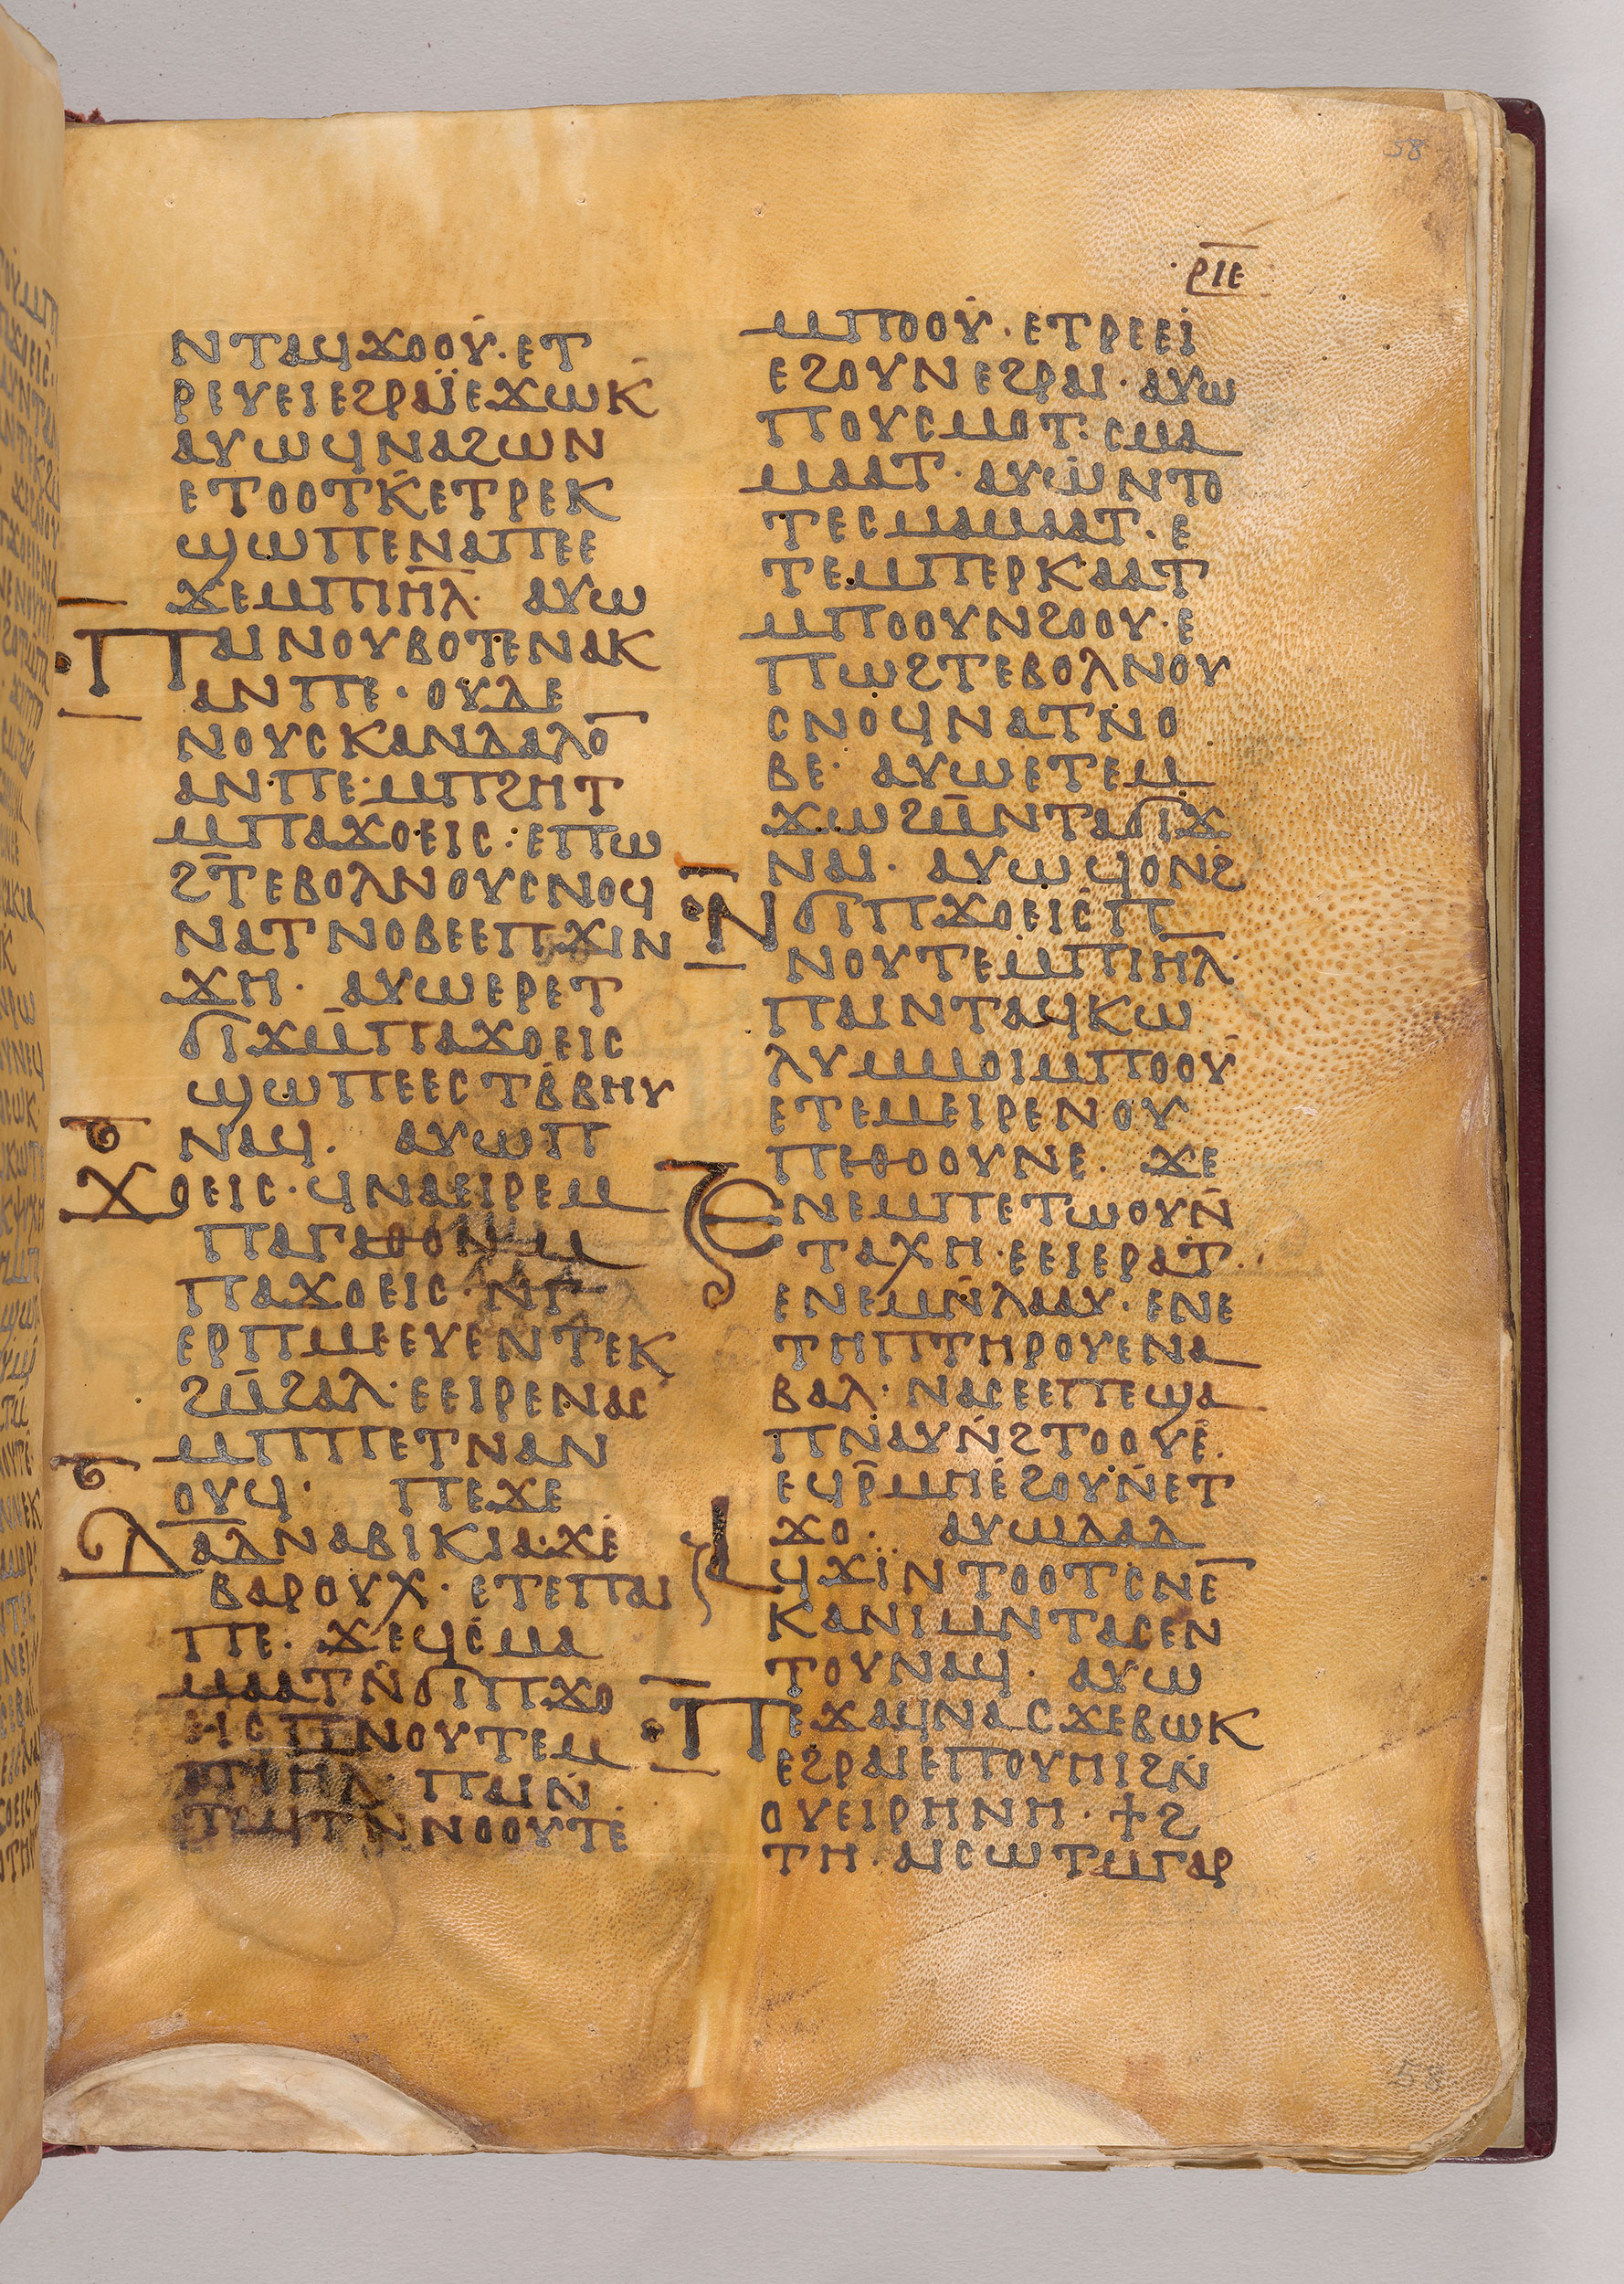 58
ⲣⲓⲉ
ⲛⲧⲁϥϫⲟⲟⲩ· ⲉⲧ
ⲣⲉⲩⲉⲓⲉϩⲣⲁⲓ̈ⲉϫⲱⲕ
ⲁⲩⲱϥⲛⲁϩⲱⲛ
ⲉⲧⲟⲟⲧⲕⲉⲧⲣⲉⲕ
ϣⲱⲡⲉⲛⲁⲡⲉⲉ
ϫⲉⲙⲡⲓⲏ̅ⲗ̅· ⲁⲩⲱ
ⲡⲁⲓⲛⲟⲩⲃⲟⲧⲉⲛⲁⲕ
ⲁⲛⲡⲉ· ⲟⲩⲇⲉ
ⲛⲟⲩⲥⲕⲁⲛⲇⲁⲗⲟ̅
ⲁⲛⲡⲉ· ⲙⲡϩⲏⲧ
ⲙⲡⲁϫⲟⲉⲓⲥ: ⲉⲡⲱ
ϩⲧ̅ⲉⲃⲟⲗⲛⲟⲩⲥⲛⲟϥ
ⲛⲁⲧⲛⲟⲃⲉⲉⲡϫⲓⲛ
ϫⲏ· ⲁⲩⲱⲉⲣⲉⲧ
ϭⲓϫⲙ̅ⲡⲁϫⲟⲉⲓⲥ
ϣⲱⲡⲉⲉⲥⲧⲃⲃⲏⲩ
ⲛⲁϥ· ⲁⲩⲱⲡ
ϫⲟⲉⲓⲥ· ϥⲛⲁⲉⲓⲣⲉⲙ
ⲡⲁⲅⲁⲑⲟⲛⲙ
ⲡⲁϫⲟⲉⲓⲥ· ⲛⲅ
ⲉⲣⲡⲙⲉⲉⲩⲉⲛⲧⲉⲕ
ϩⲙ̅ϩⲁⲗ· ⲉⲉⲓⲣⲉⲛⲁⲥ
ⲙⲡⲡⲉⲧⲛⲁⲛ
ⲟⲩϥ· ⲡⲉϫⲉ
ⲇⲁⲇⲛⲁⲃⲓⲕⲓⲁ· ϫⲉ
ⲃⲁⲣⲟⲩⲭ· ⲉⲧⲉⲡⲁⲓ
ⲡⲉ· ϫⲉϥⲥⲙⲁ
ⲙⲁⲁⲧⲛ̇ϭⲓⲡϫⲟ
ⲉⲓⲥⲡⲛⲟⲩⲧⲉⲙ
ⲡⲓⲏ̅ⲗ̅· ⲡⲁⲓⲛ̇
ⲧⲁϥⲧⲛ̄ⲛⲟⲟⲩⲧⲉ
ⲙⲡⲟⲟⲩ· ⲉⲧⲣⲉⲉⲓ
ⲉϩⲟⲩⲛⲉϩⲣⲁⲓ· ⲁⲩⲱ
ⲡⲟⲩⲥⲙⲟⲧ: ⲥⲙⲁ
ⲙⲁⲁⲧ· ⲁⲩⲱⲛⲧⲟ
ⲧⲉⲥⲙⲁⲙⲁⲁⲧ· ⲉ
ⲧⲉⲙⲡⲉⲣⲕⲁⲁⲧ
ⲙⲡⲟⲟⲩⲛϩⲟⲟⲩ· ⲉ
ⲡⲱϩⲧⲉⲃⲟⲗⲛⲟⲩ
ⲥⲛⲟϥⲛⲁⲧⲛⲟ
ⲃⲉ· ⲁⲩⲱⲉⲧⲉⲙ
ϫⲱϩⲙ̅ⲛⲧⲁϭⲓϫ
ⲛⲁⲓ· ⲁⲩⲱϥⲟⲛϩ
ⲛϭⲓⲡϫⲟⲉⲓⲥⲡ
ⲛⲟⲩⲧⲉⲙⲡⲓⲏ̅ⲗ̅·
ⲡⲁⲓⲛⲧⲁϥⲕⲱ
ⲗⲩⲙⲙⲟⲓⲙⲡⲟⲟⲩ
ⲉⲧⲉⲙⲉⲓⲣⲉⲛⲟⲩ
ⲡⲉⲑⲟⲟⲩⲛⲉ· ϫⲉ
ⲉⲛⲉⲙⲡⲉⲧⲱⲟⲩⲛ̇
ⲧⲁⲭⲏ· ⲉⲉⲓⲉⲣⲁⲧ·
ⲉⲛⲉⲙⲛ̇ⲗⲁⲁⲩ· ⲉⲛⲉ
ⲧⲏⲡⲧⲏⲣⲟⲩⲉⲛⲁ
ⲃⲁⲗ· ⲛⲁⲥⲉⲉⲡⲉϣⲁ
ⲡⲛⲁⲩⲛ̇ϩⲧⲟⲟⲩⲉ·
ⲉϥⲣ̅ⲙⲡⲉϩⲟⲩⲛ̇ⲉⲧ
ϫⲟ· ⲁⲩⲱⲇⲁⲇ
ϥϫⲓ̈ⲛⲧⲟⲟⲧⲥⲛⲉ̅
ⲕⲁⲛⲓⲙⲛⲧⲁⲥⲉⲛ
ⲧⲟⲩⲛⲁϥ· ⲁⲩⲱ
ⲡⲉϫⲁϥⲛⲁⲥϫⲉⲃⲱⲕ
ⲉϩⲣⲁⲓⲉⲡⲟⲩⲏⲓϩⲛ̇
ⲟⲩⲉⲓⲣⲏⲛⲏ· ϯϩ
ⲧⲏ· ⲁⲓⲥⲱⲧⲙⲅⲁⲣ
58